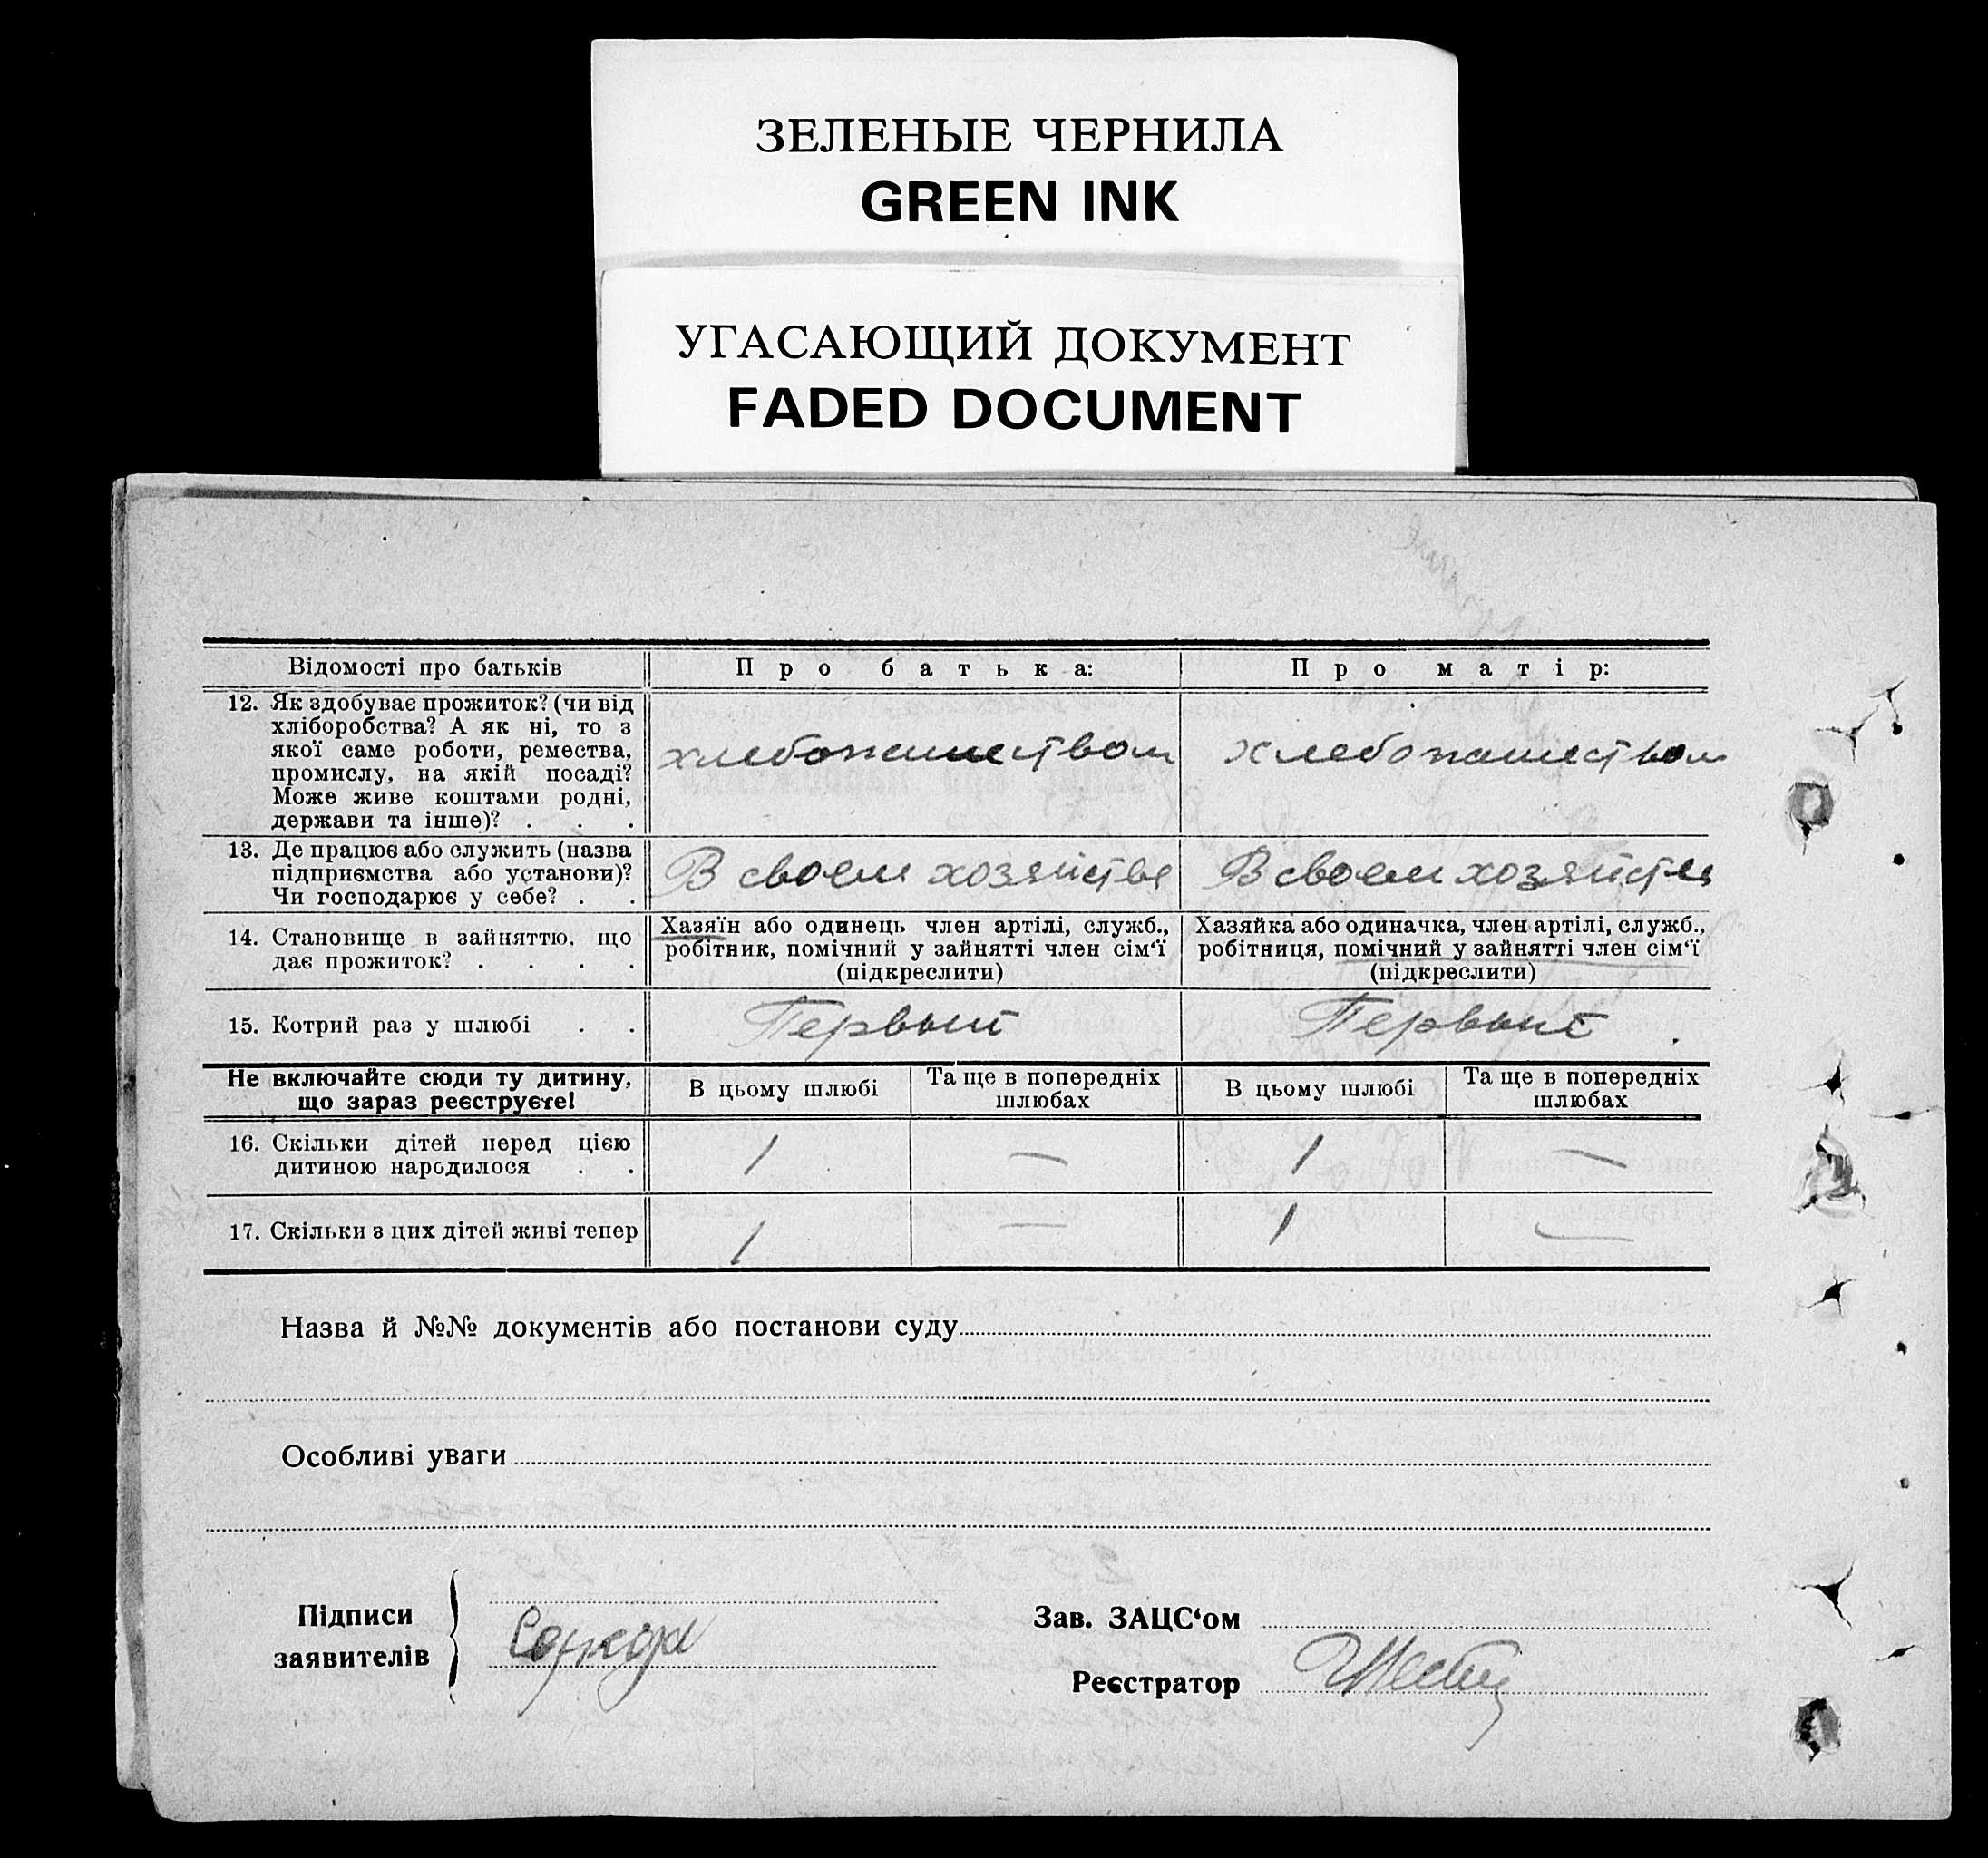 ЗЕЛЕНЫЕ ЧЕРНИЛА
GREEN INK
УГАСАЮЩИЙ ДОКУМЕНТ
FADED DOCUMENT
Відомості про батьків
Про батька:
Про матір:
12. Як здобуває прожиток? (чи від
хліборобства? А як ні, то з
якої саме роботи, ремества,
промислу, на якій посаді?
Може живе коштами родні,
держави та інше)? . . .
хлебопашеством
хлебопашеством
13. Де працює або служить (назва
підприємства або установи)?
Чи господарює у себе? . .
В своем хозяйстве
В своем хозяйстве
14. Становище в зайняттю, що
дає прожиток? . . . .
Хазяїн або одинець член артілі, служб.,
робітник, помічний у зайнятті член сім‘ї
(підкреслити)
Хазяйка або одиначка, член артілі, служб.,
робітниця, помічний у зайнятті член сім‘ї
(підкреслити)
15. Котрий раз у шлюбі . .
Первый
Первый
Не включайте сюди ту дитину,
що зараз реєструєте!
В цьому шлюбі
Та ще в попередніх
шлюбах
В цьому шлюбі
Та ще в попередніх
шлюбах
16. Скільки дітей перед цією
дитиною народилося . .
1
—
1
—
17. Скільки з цих дітей живі тепер
1
—
1
—
Назва й №№ документів або постанови суду
Особливі уваги
Підписи
заявителів
Зав. ЗАЦС‘ом
Реєстратор